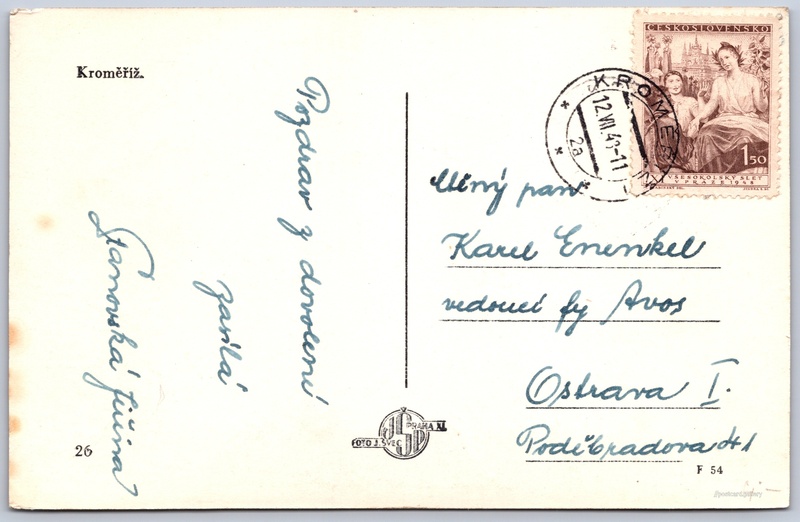 Kroměříž.
Pozdrav z dovolení
zasílá
Stanovská Jiřina
26
FOTO J. ŠVEC
PRAHA XI.
JŠP
ČESKOSLOVENSKO
1 50
VŠESOKOLSKÝ SLET
V PRAZE 1948
KROMĚŘÍŽ
12.VII.48-11
2a
Ctěný pan
Karel Enenkel
vedoucí fy Avos
Ostrava I.
Poděbradova 41
F 54